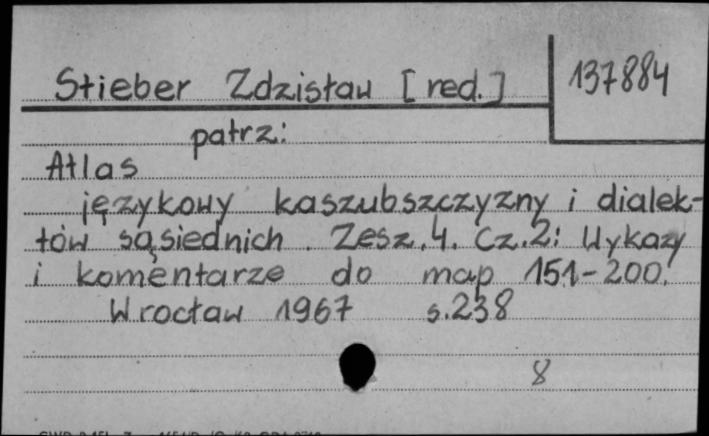 Stieber Zdzisław [red.] 137884
patrz:
Atlas
językowy kaszubszczyzny i dialek-
tów sąsiednich. Zesz.4. Cz.2: Wykazy
i komentarze do map 151-200.
Wrocław 1967 s.238
8